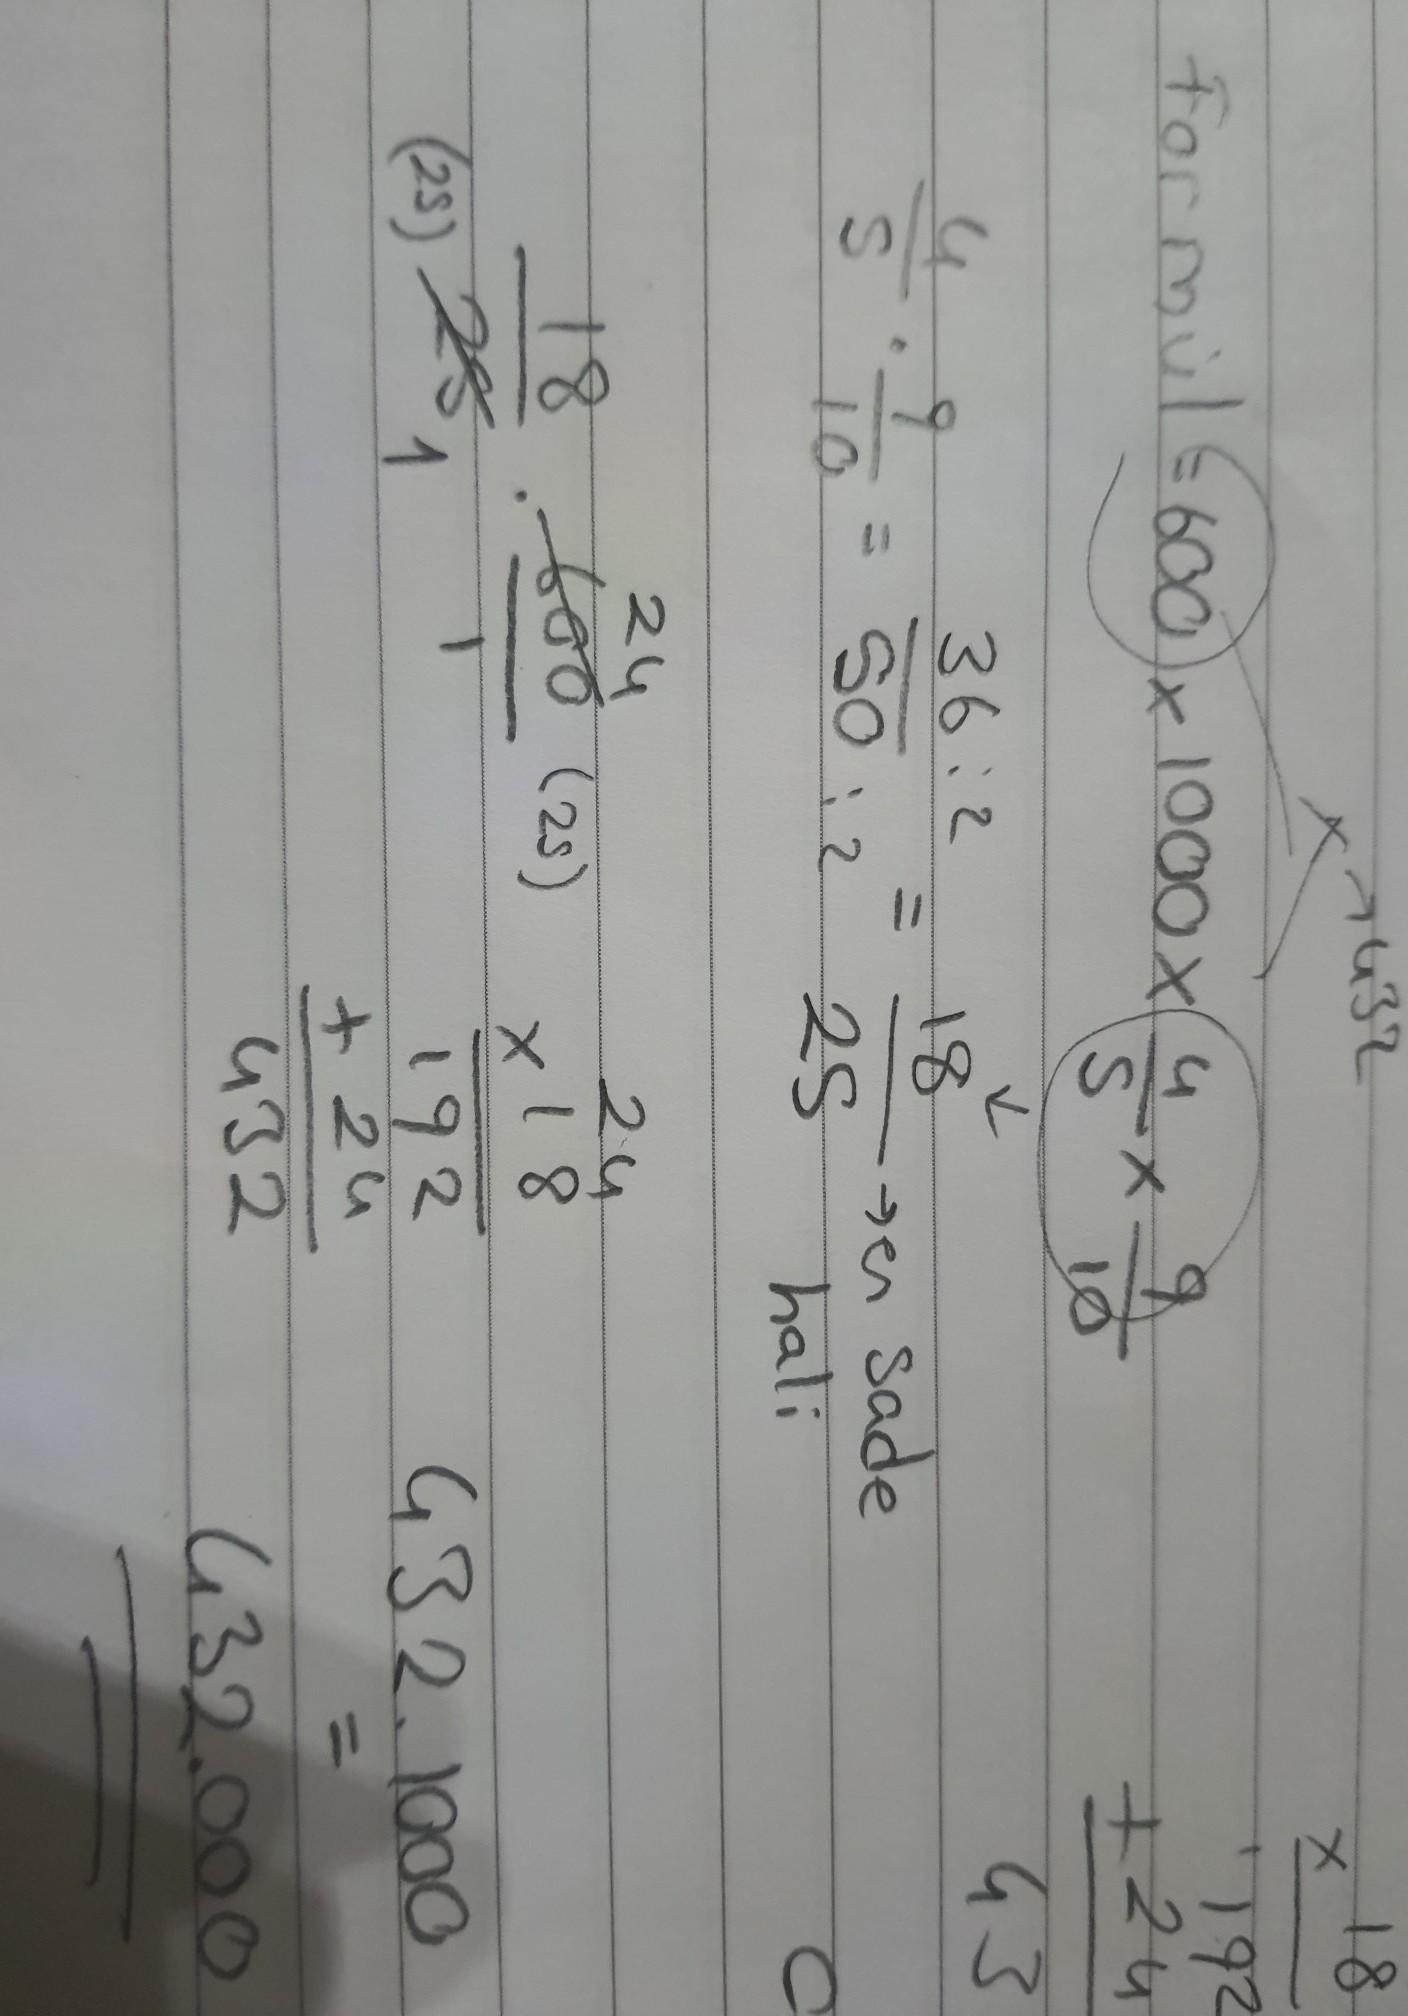 x → 432
Formül = 600 x 1000 x 4/5 x 9/10
4/5 . 9/10 = 36:2/50:2 = 18/25 → en sade
hali
18/25 (25) 1 . 600/1 (25) 24
24
x 18
192
+ 24
432
432.1000
=
432.000
x 18
192
+ 24
43